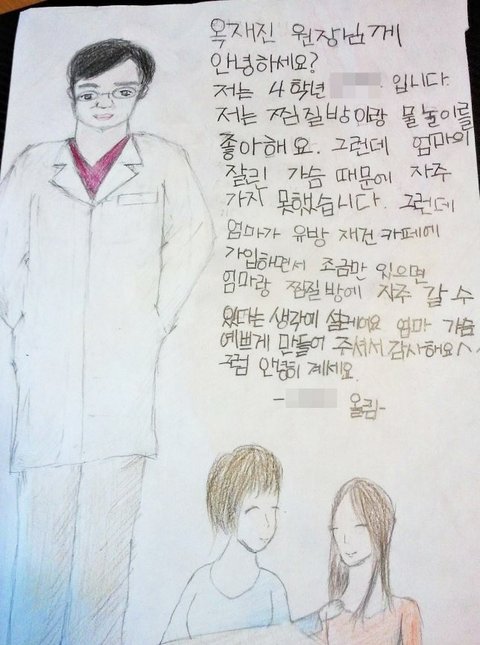 옥재진 원장님께
안녕하세요?
저는 4학년 입니다.
저는 찜질방이랑 물놀이를
좋아해요. 그런데 엄마의
잘린 가슴 때문에 자주
가지 못했습니다. 그런데
엄마가 유방 재건 카페에
가입하면서 조금만 있으면
엄마랑 찜질방에 자주 갈 수
있다는 생각에 설레어요 엄마 가슴
예쁘게 만들어 주셔서 감사해요^^
그럼 안녕히 계세요.
- 올림-